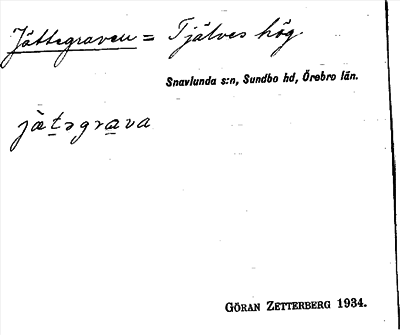 Jättegraven = Tjälves hög
Snavlunda s:n, Sundbo hd, Örebro län.
jä̀t̲əgra̲va
GÖRAN ZETTERBERG 1934.